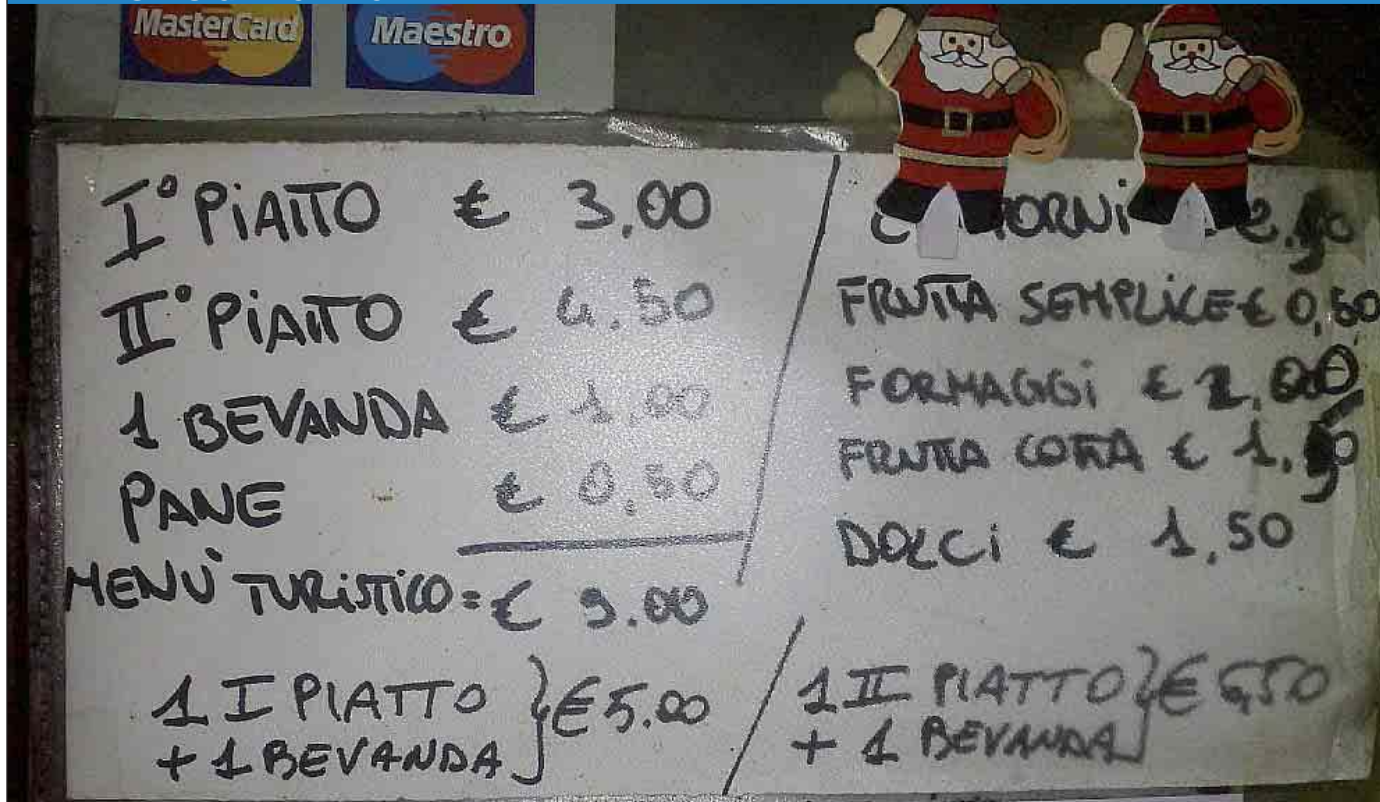 MasterCard Maestro
I° PIATTO € 3,00
II° PIATTO € 4,50
1 BEVANDA € 1,00
PANE € 0,50
MENÙ TURISTICO = € 9.00
1 I PIATTO } € 5.00
+ 1 BEVANDA
FRUTTA SEMPLICE € 0,50
FORMAGGI €
FRUTTA COTTA €
DOLCI € 1,50
1 II PIATTO } €
+ 1 BEVANDA